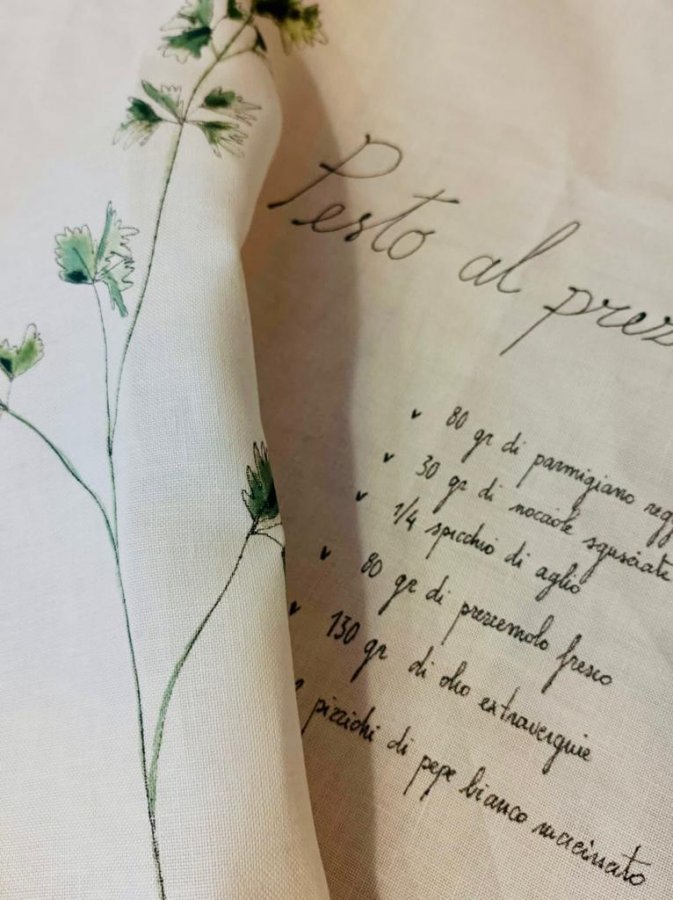 Pesto al prez
80 gr di parmigiano reg
30 gr di nocciole sgusciate
1/4 spicchio di aglio
80 gr di prezzemolo fresco
130 gr di olio extravergine
pizzichi di pepe bianco macinato